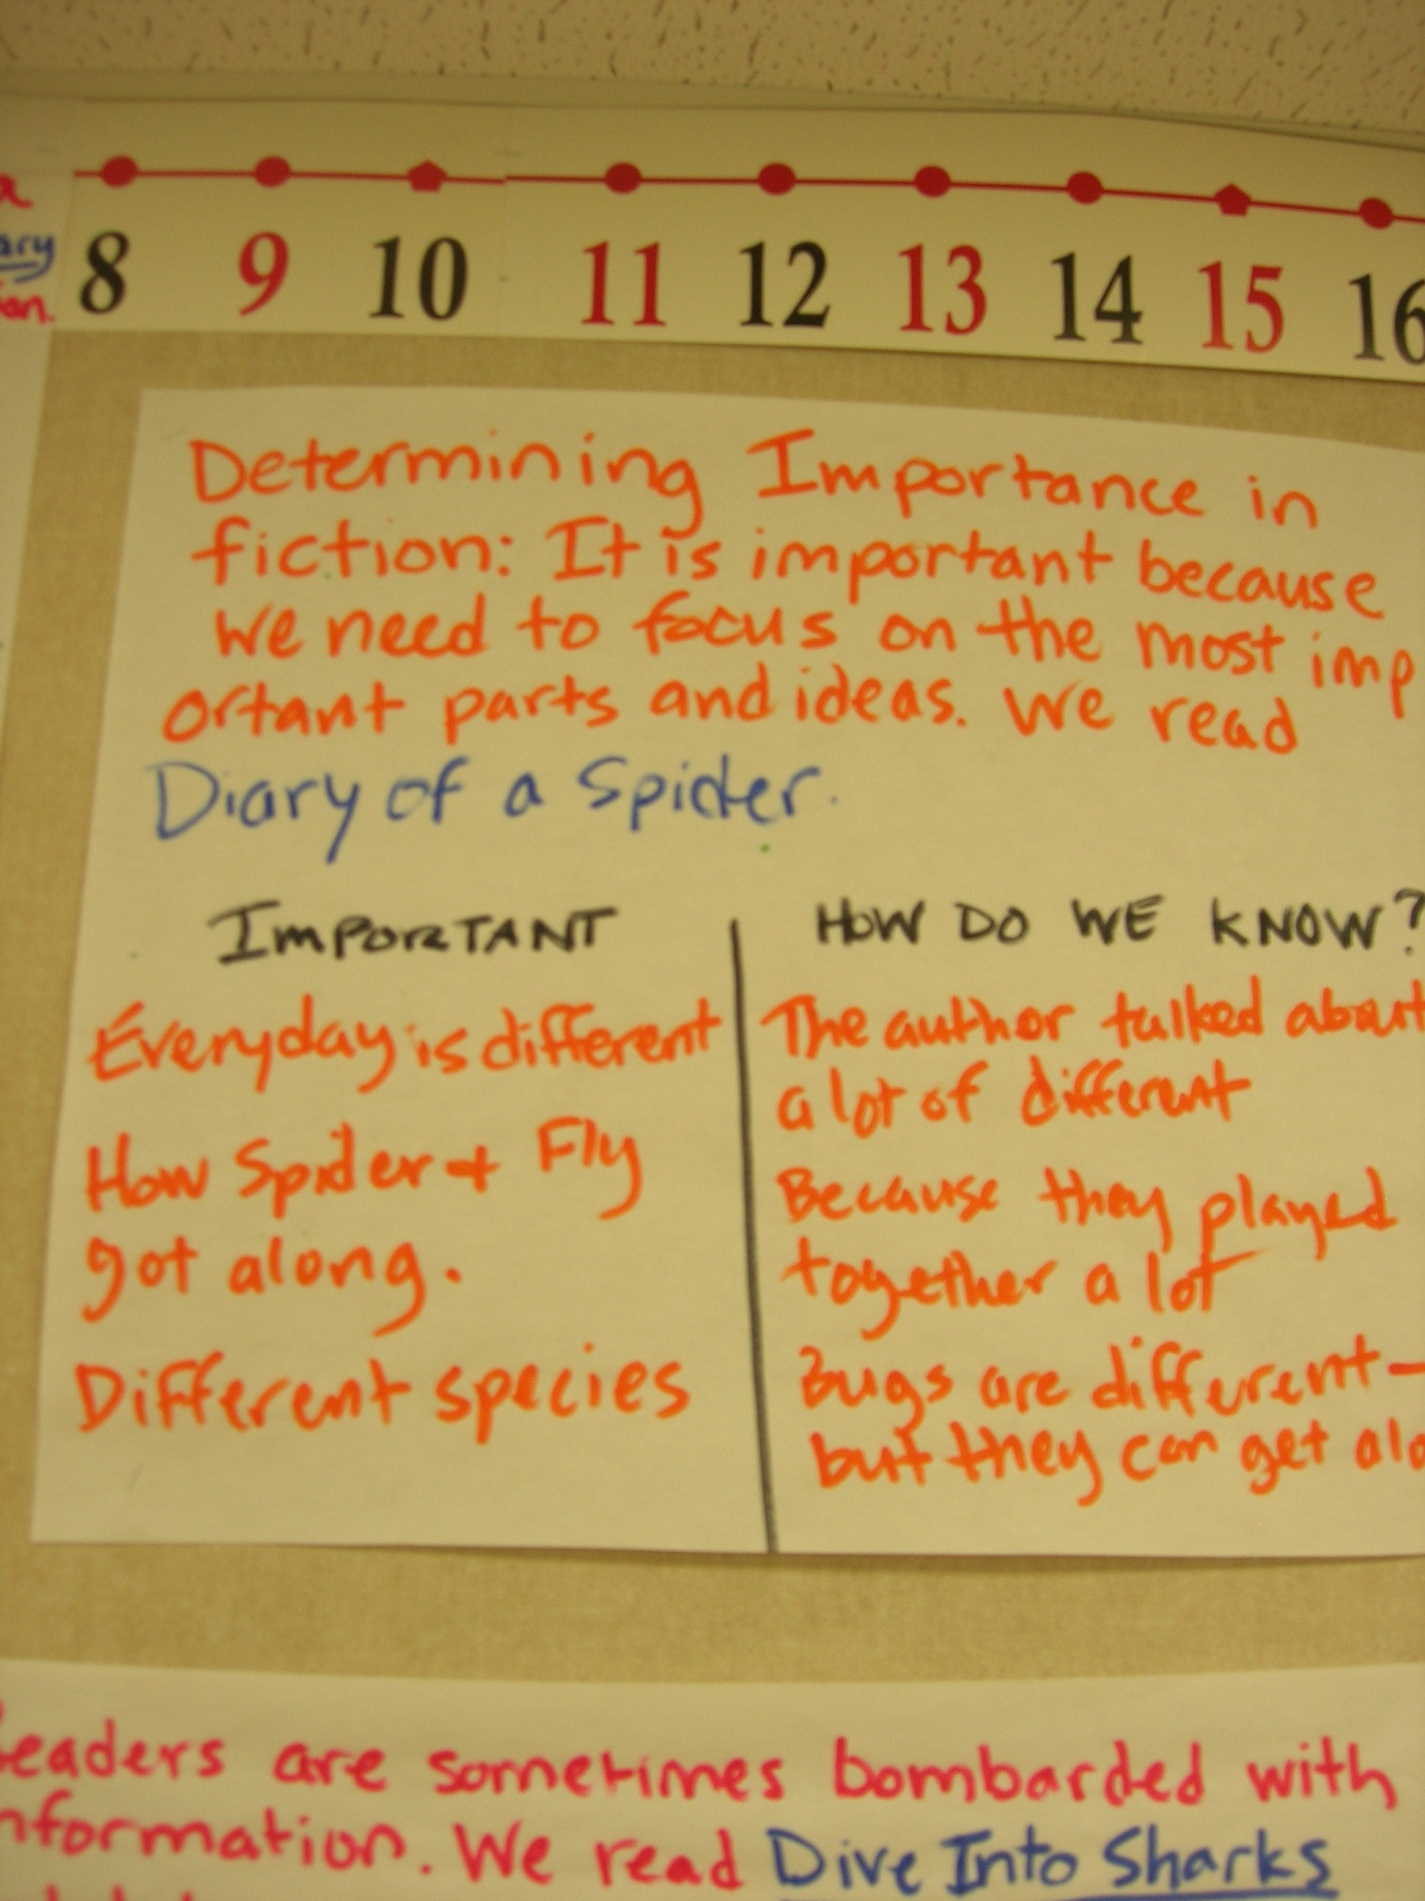 8 9 10 11 12 13 14 15 16
Determining Importance in
fiction: It is important because
we need to focus on the most imp
ortant parts and ideas. We read
Diary of a Spider.
IMPORTANT
HOW DO WE KNOW?
Everyday is different
The author talked about
a lot of different
How Spider + Fly
got along.
Because they played
together a lot
Different species
Bugs are different-
but they can get alo
eaders are sometimes bombarded with
nformation. We read Dive Into Sharks